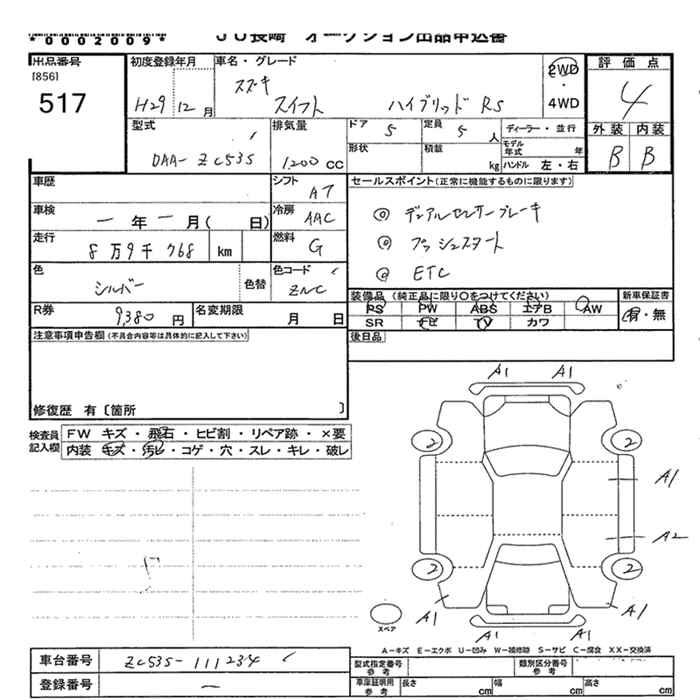 *0002009*
JU長崎 オークション出品申込書
出品番号
[856]
517
初度登録年月
H29 12月
車名・グレード
スズキ
スイフト ハイブリッド RS
2WD
・
4WD
評価点
4
外装 内装
B B
型式
DAA-ZC53S
排気量
1,200 CC
ドア 5
定員 5 人
形状
積載 kg
ディーラー・並行
モデル年式 年
ハンドル 左・右
車歴
シフト AT
車検 ー年ー月( 日)
冷房 AAC
走行 8万9千768 km
燃料 G
色 シルバー 色替
色コード ZNC
R券 9,380円
名変期限 月 日
セールスポイント(正常に機能するものに限ります)
◎ デュアルセンサーブレーキ
◎ プッシュスタート
◎ ETC
装備品 (純正品に限り○をつけてください)
PS PW ABS エアB AW
SR ナビ TV カワ
新車保証書
有・無
後日品
注意事項申告欄(不具合内容等は具体的に記入して下さい)
修復歴 有〔箇所 〕
検査員記入欄
FW キズ・飛石・ヒビ割・リペア跡・×要
内装 キズ・汚レ・コゲ・穴・スレ・キレ・破レ
A1 A1
2 2
A1
A2
2 2
A1 A1
A1 A1
スペア
A-キズ E-エクボ U-凹み W-補修跡 S-サビ C-腐食 XX-交換済
車台番号 ZC53S-111234
登録番号 ー
型式指定番号参考
類別区分番号参考
車庫証明用参考 長さ cm 幅 cm 高さ cm